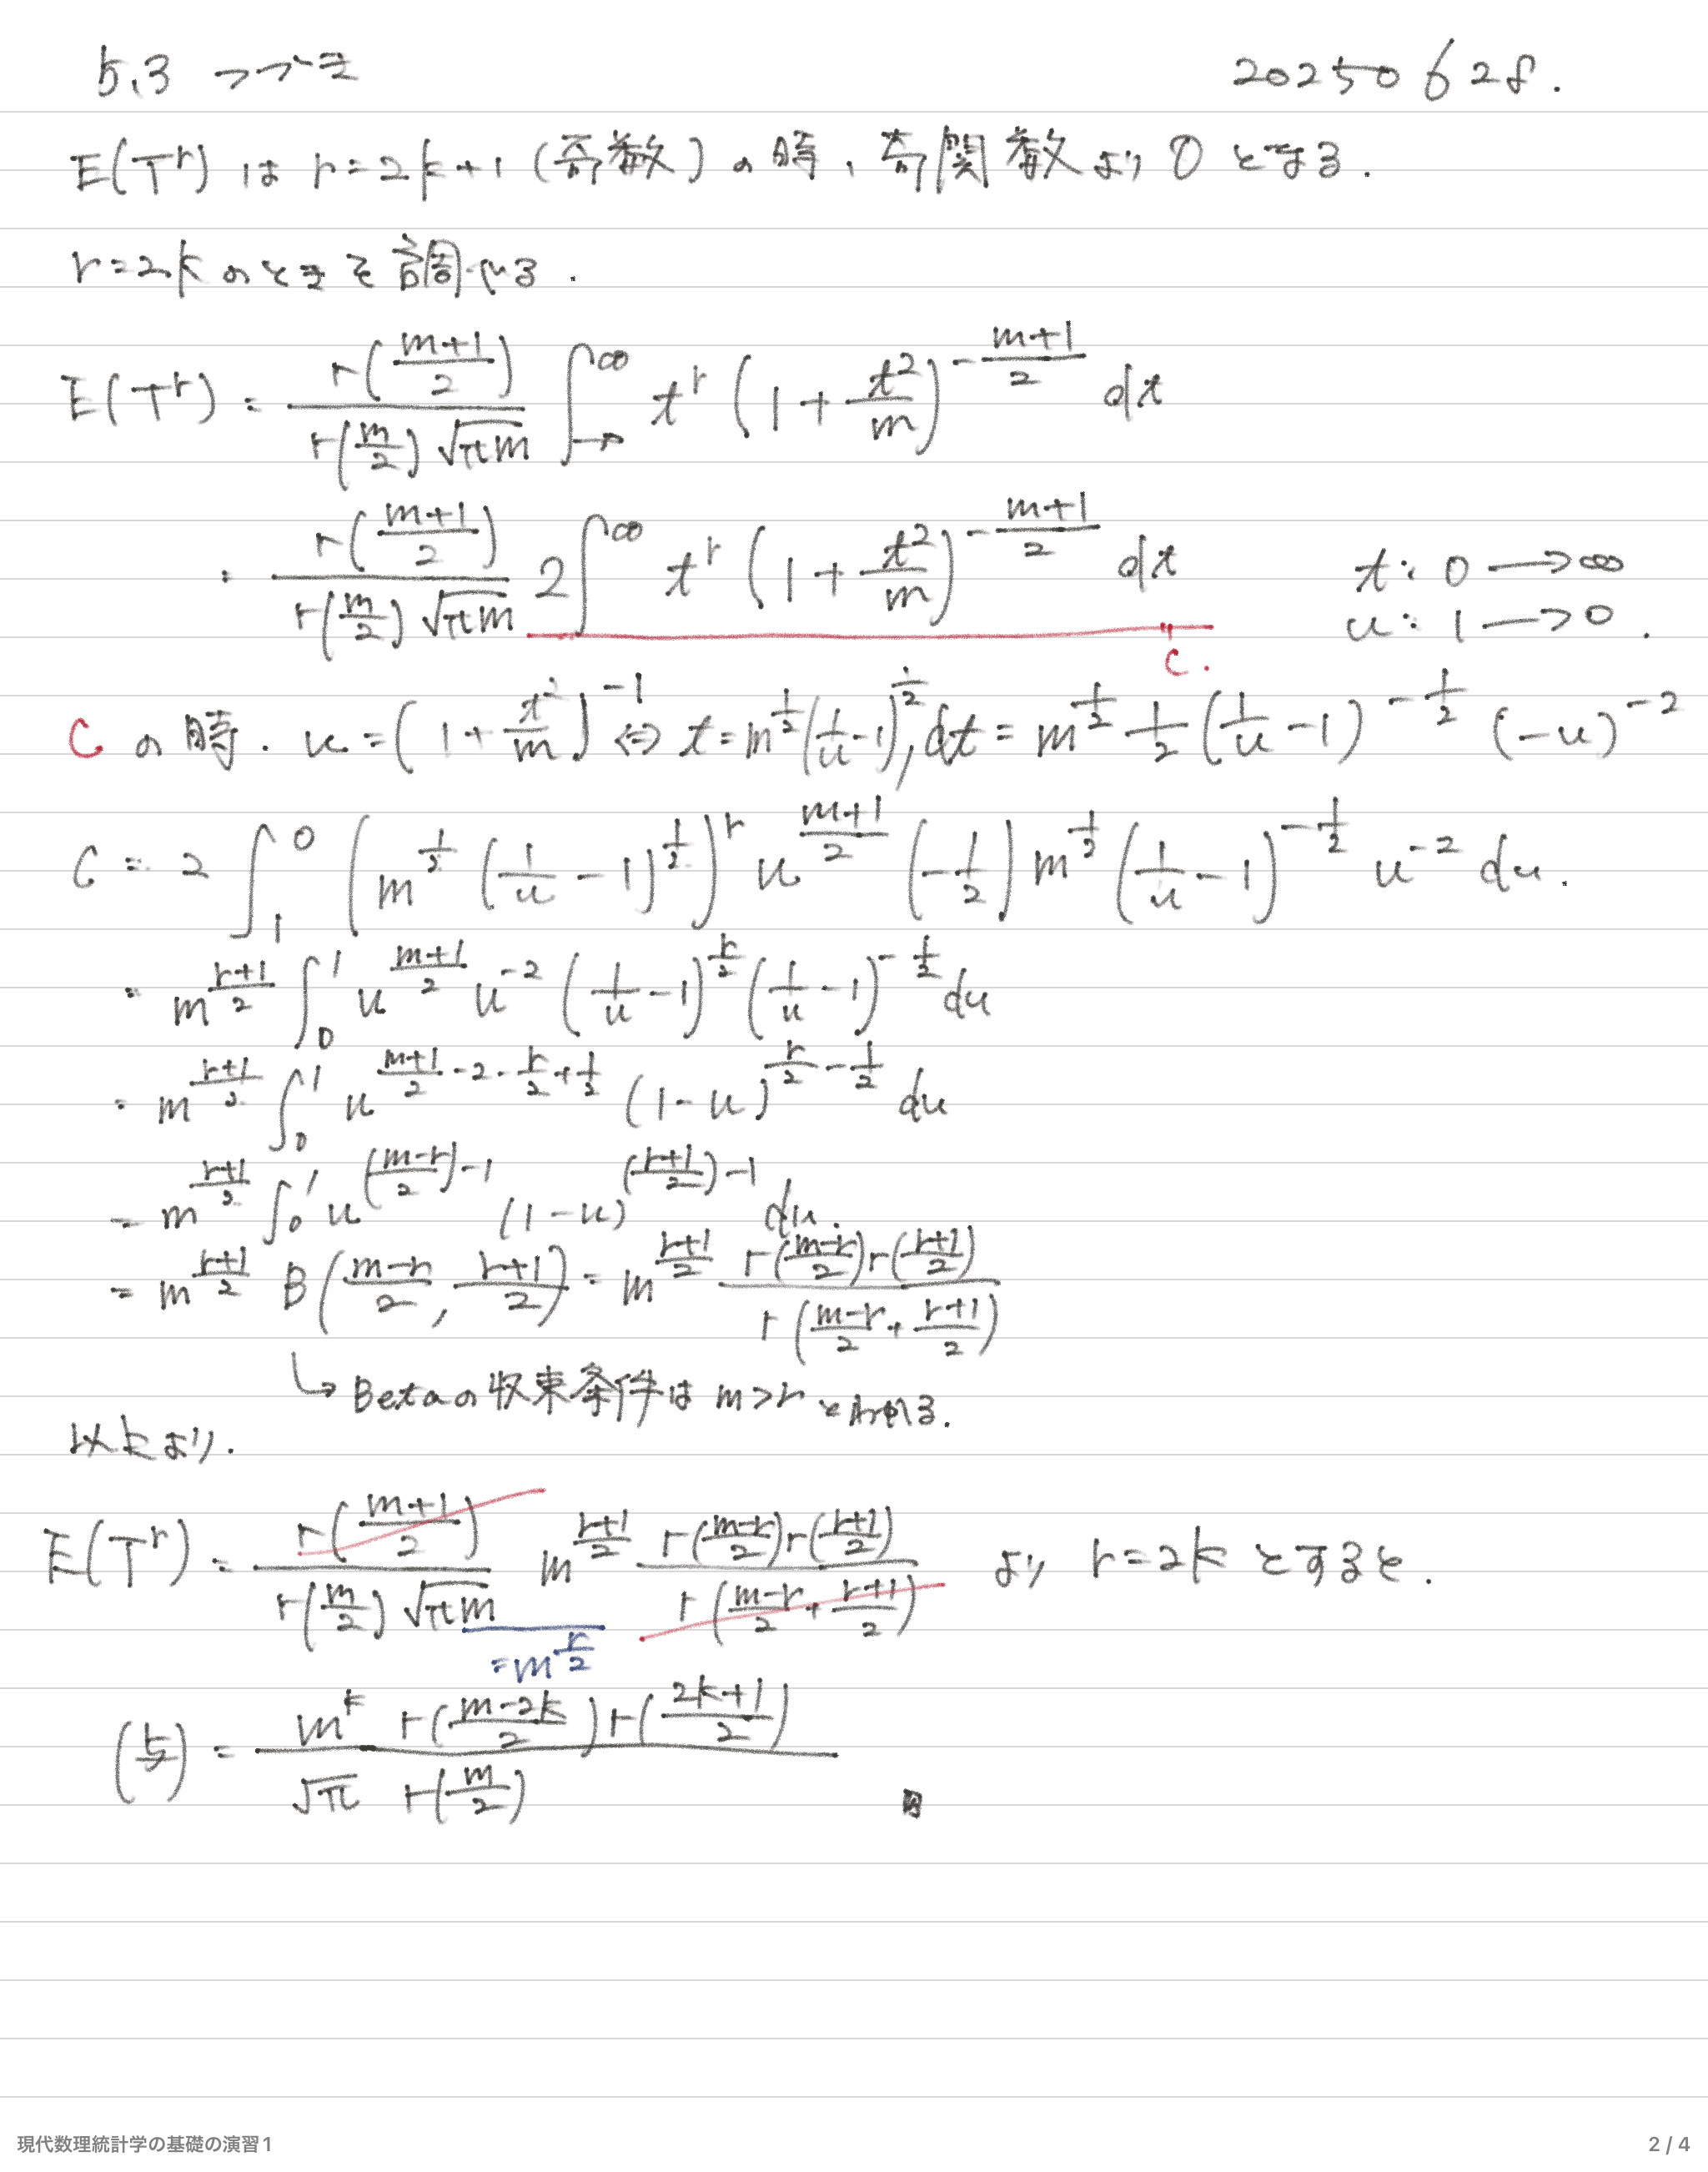 5.3 つづき 20250628.
E(T^r) は r=2k+1 (奇数) の時、奇関数より 0 となる.
r=2k のときを調べる.
E(T^r) = \frac{Γ(\frac{m+1}{2})}{Γ(\frac{m}{2})\sqrt{πm}} ∫_{-∞}^{∞} t^r (1+\frac{t^2}{m})^{-\frac{m+1}{2}} dt
= \frac{Γ(\frac{m+1}{2})}{Γ(\frac{m}{2})\sqrt{πm}} 2∫^{∞} t^r (1+\frac{t^2}{m})^{-\frac{m+1}{2}} dt t: 0 → ∞
u: 1 → 0.
"C.
C の時. u=(1+\frac{t^2}{m})^{-1} ⇔ t=m^{\frac{1}{2}}(\frac{1}{u}-1)^{\frac{1}{2}}, dt = m^{\frac{1}{2}} \frac{1}{2} (\frac{1}{u}-1)^{-\frac{1}{2}} (-u)^{-2}
C = 2 ∫_1^0 (m^{\frac{1}{2}} (\frac{1}{u}-1)^{\frac{1}{2}})^r u^{\frac{m+1}{2}} (-\frac{1}{2}) m^{\frac{1}{2}} (\frac{1}{u}-1)^{-\frac{1}{2}} u^{-2} du.
= m^{\frac{r+1}{2}} ∫_0^1 u^{\frac{m+1}{2}} u^{-2} (\frac{1}{u}-1)^{\frac{r}{2}} (\frac{1}{u}-1)^{-\frac{1}{2}} du
= m^{\frac{r+1}{2}} ∫_0^1 u^{\frac{m+1}{2}-2-\frac{r}{2}+\frac{1}{2}} (1-u)^{\frac{r}{2}-\frac{1}{2}} du
= m^{\frac{r+1}{2}} ∫_0^1 u^{(\frac{m-r}{2})-1} (1-u)^{(\frac{r+1}{2})-1} du.
= m^{\frac{r+1}{2}} B(\frac{m-r}{2}, \frac{r+1}{2}) = m^{\frac{r+1}{2}} \frac{Γ(\frac{m-r}{2})Γ(\frac{r+1}{2})}{Γ(\frac{m-r}{2}+\frac{r+1}{2})}
↳ Betaの収束条件は m>r とわかる.
以上より.
E(T^r) = \frac{Γ(\frac{m+1}{2})}{Γ(\frac{m}{2})\sqrt{πm}} m^{\frac{r+1}{2}} \frac{Γ(\frac{m-r}{2})Γ(\frac{r+1}{2})}{Γ(\frac{m-r}{2}+\frac{r+1}{2})} より r=2k とすると.
=m^{\frac{r}{2}}
(与) = \frac{m^k Γ(\frac{m-2k}{2})Γ(\frac{2k+1}{2})}{\sqrt{π} Γ(\frac{m}{2})}
現代数理統計学の基礎の演習1 2 / 4